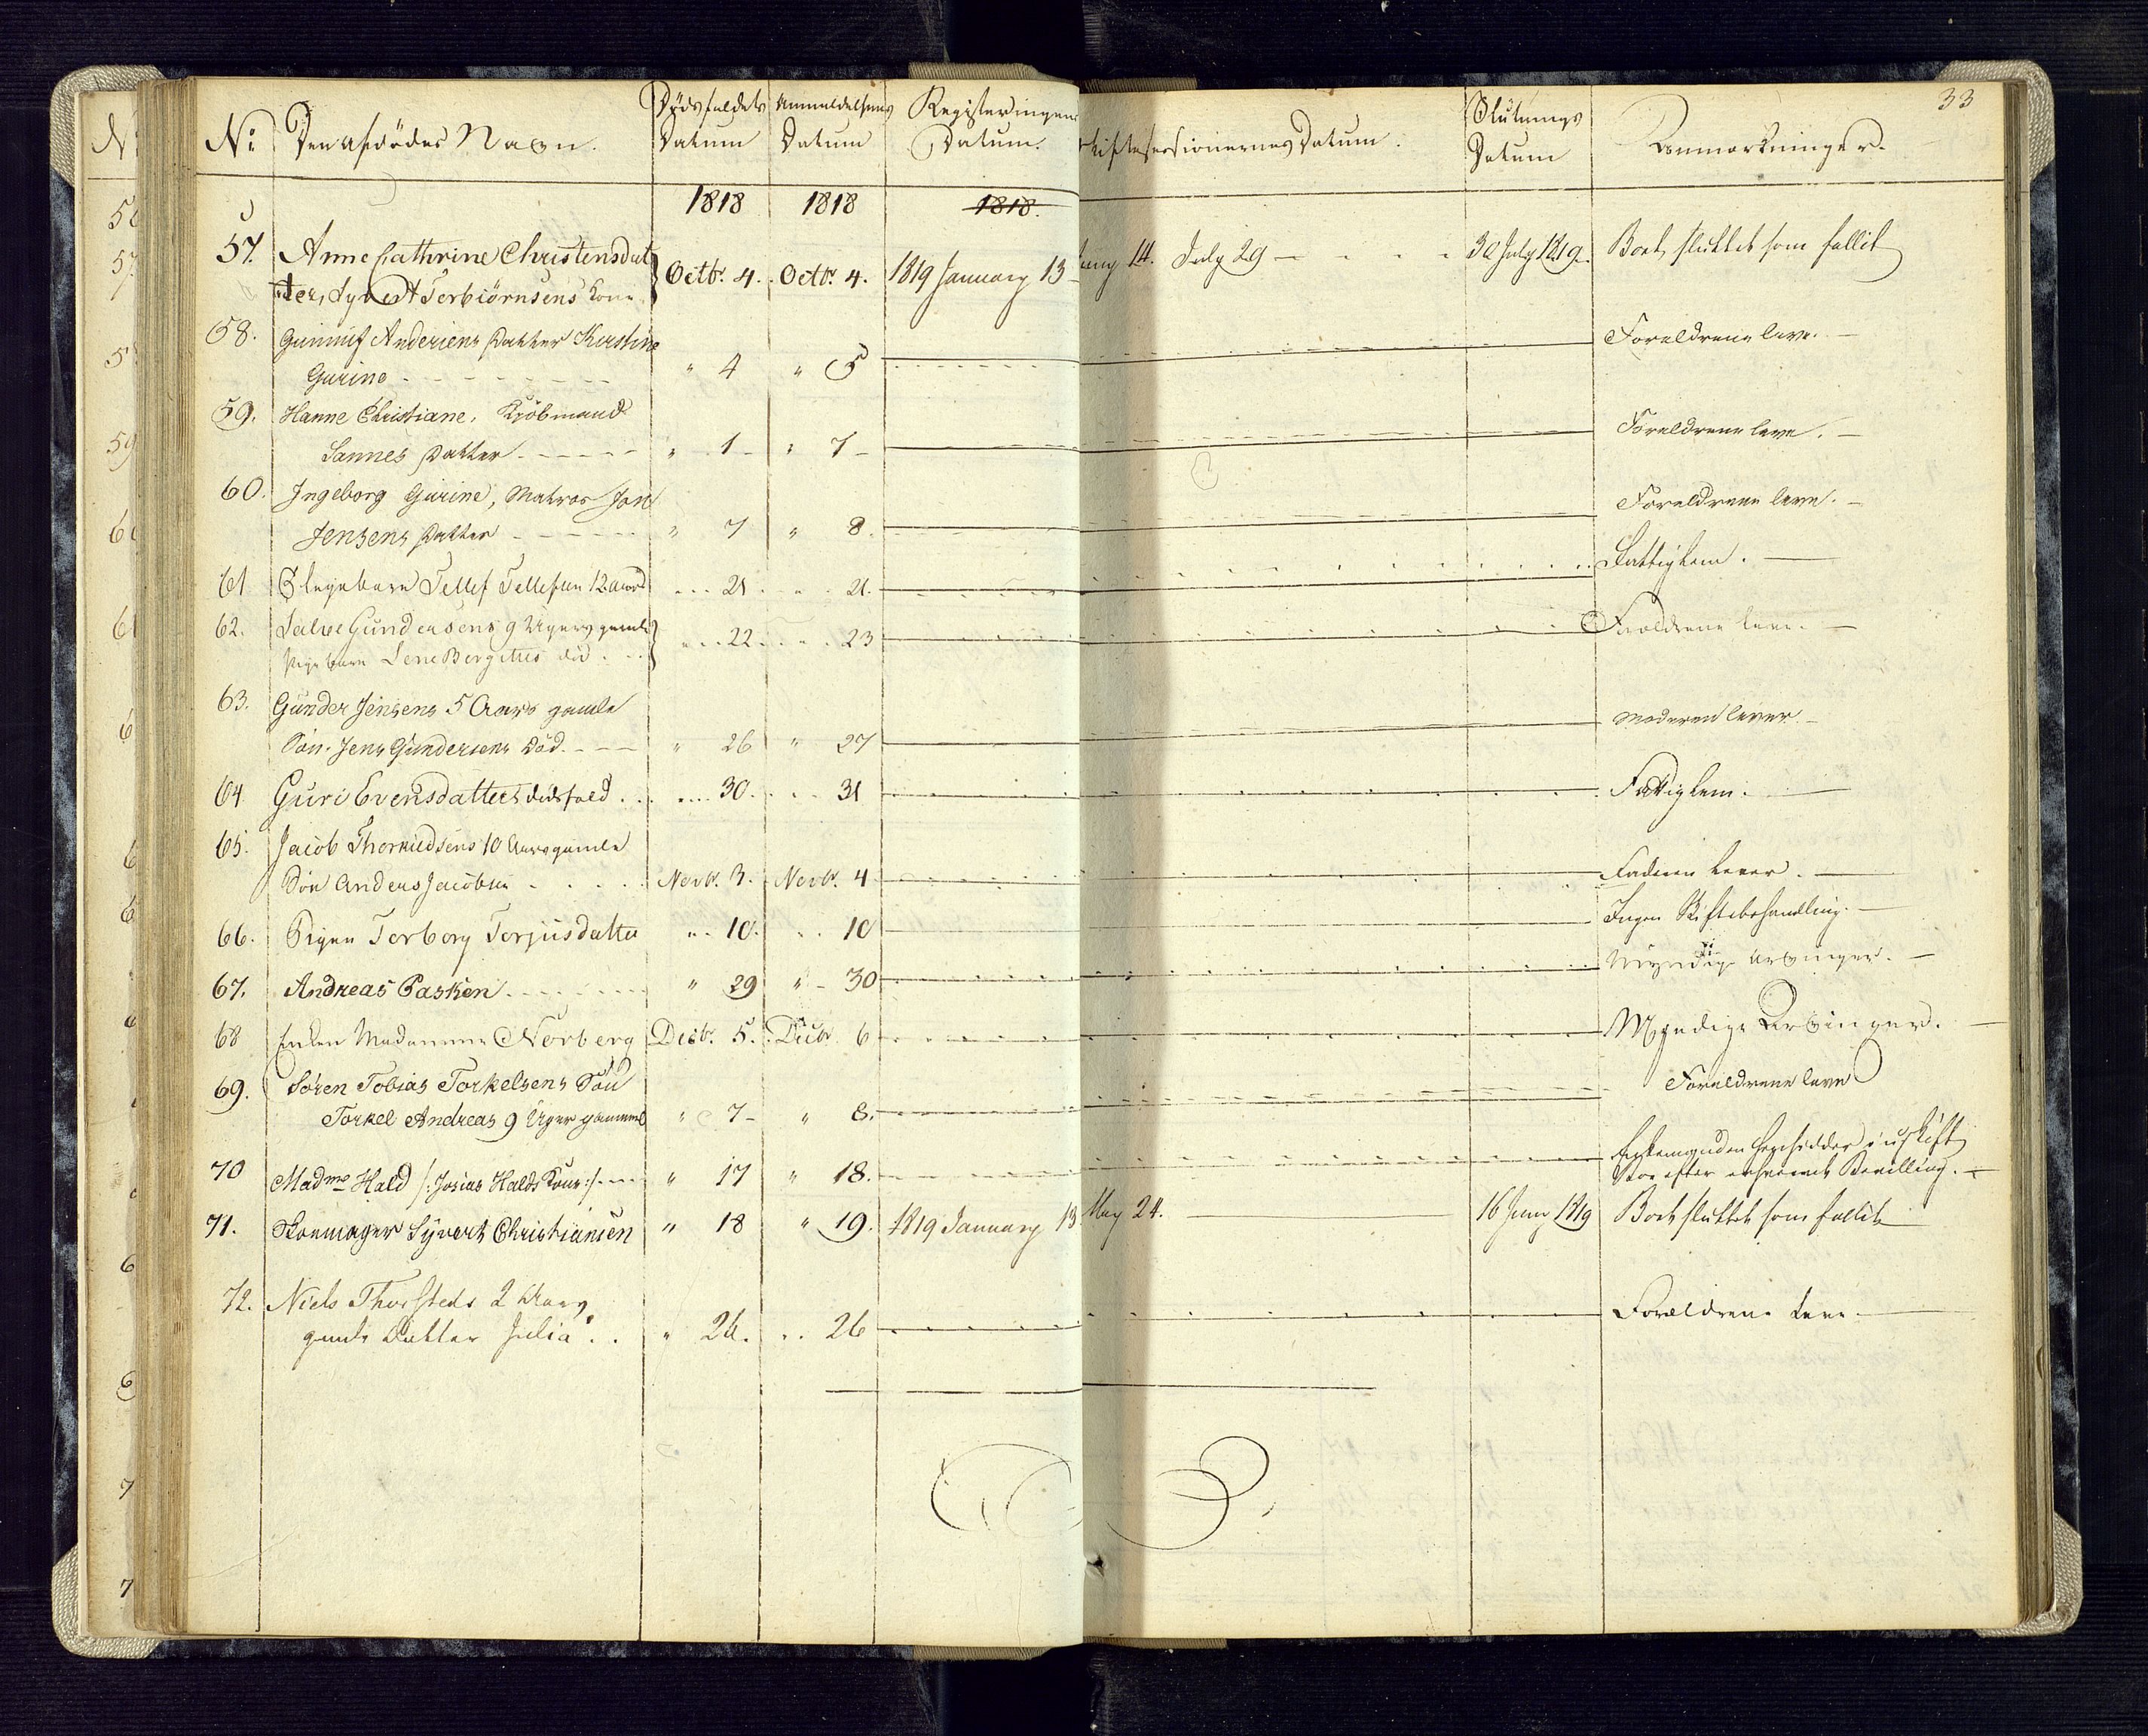 33
No Den afdödes Navn. Dødsfaldets Datum Anmeldelsens Datum Registeringens Datum. Skiftesessionernes Datum. Slutnings Datum Anmærkninger.
1818 1818 1818.
57. Anne Cathrine Christensdat
ter, Syvert Terbiörnsens Kone Octbr. 4. Octbr. 4. 1819 January 13 14. July 29 30 July 1819. Boet sluttet som fallit
58. Gunnuf Andersens Datter Kirstine
Gurine " 4 " 5 Forældrene leve.
59. Hanne Christiane, Kjöbmand
Sannes Datter " 1 " 7 Forældrene leve.
60. Ingeborg Gurine, Matros Jon
Jensens Datter " 7 " 8. Forældrene leve.
61 Tellef Tellefsen 21 21. Fattiglem.
62. Salve Gundersens 9 Ugers gamle
Pigebarn Lene Bergittes död 22 23 Forældrene leve.
63. Gunder Jensens 5 Aars gamle
Sön Jens Gundersens Död " 26 " 27 Moderen lever
64 Guri Evensdatters dødsfald 30. 31 Fattiglem.
65. Jacob Thorkildsens 10 Aars gamle
Sön Anders Jacobsen Novbr. 3. Novbr. 4 Faderen lever.
66. Pigen Torborg Torjusdatter " 10. 10 Ingen Skiftebehandling.
67. Andreas Pasken " 29 " 30 Myndige Arvinger.
68 Enken Madamme Norberg Decbr. 5. Decbr. 6 Myndige Arvinger.
69. Sören Tobias Torkelsens Sön
Torkel Andreas 9 Uger gammel " 7 " 8. Forældrene leve
70 Madme Hald /: Josias Halds Kone :/ " 17 " 18. Enkemanden hensidder i uskift
Boe efter erhvervet Bevilling.
71. Skomager Syvert Christiansen " 18 " 19. 1819 January 13 May 24. 16 Juny 1819 Boet sluttet som fallit
72. Niels Thorsteds 2 Aars
gamle Datter Julia " 26. 26 Forældrene leve.